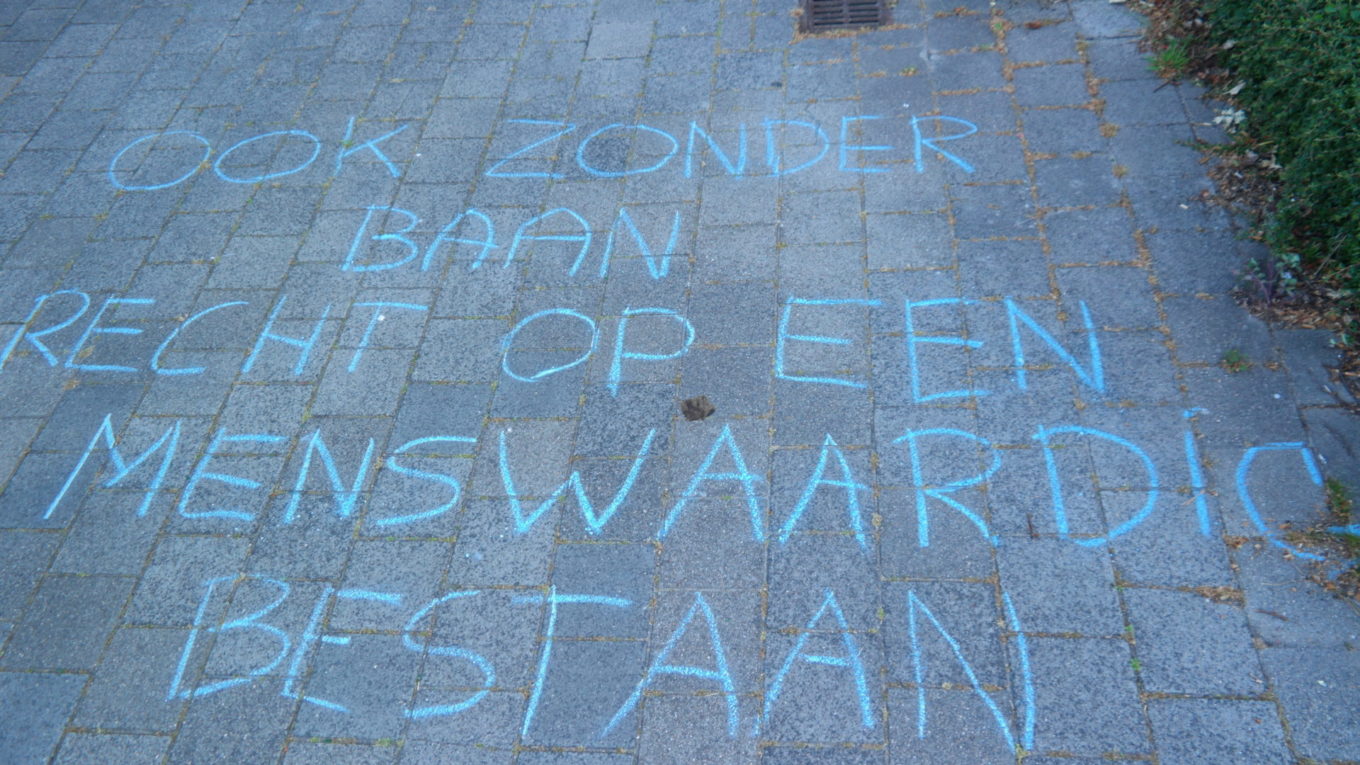 OOK ZONDER
BAAN
RECHT OP EEN
MENSWAARDIG
BESTAAN